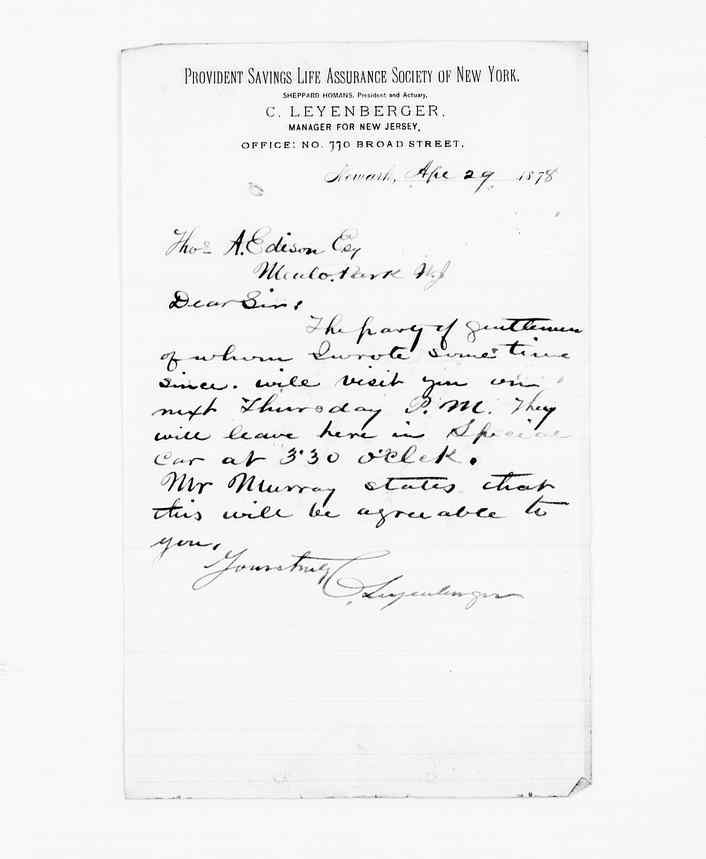 PROVIDENT SAVINGS LIFE ASSURANCE SOCIETY OF NEW YORK.
SHEPPARD HOMANS, President and Actuary,
C. LEYENBERGER,
MANAGER FOR NEW JERSEY,
OFFICE: NO. 770 BROAD STREET,
Newark, Apl 29 1878
Thos A. Edison Esq
Menlo Park NJ
Dear Sir:
The party of gentlemen
of whom I wrote some time
since. will visit you on
next Thursday P.M. They
will leave here in Special
Car at 3'30 O'Clck.
Mr Murray states that
this will be agreeable to
you,
Yours truly
C. Leyenberger